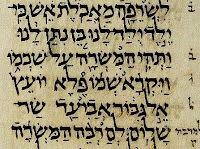 לִשְׂרֵפָה מַאֲכֹלֶת אֵשׁ כִּי
יֶלֶד יֻלַּד לָנוּ בֵּן נִתַּן לָנוּ
וַתְּהִי הַמִּשְׂרָה עַל שִׁכְמוֹ
וַיִּקְרָא שְׁמוֹ פֶּלֶא יוֹעֵץ
אֵל גִּבּוֹר אֲבִיעַד שַׂר
שָׁלוֹם לְםַרְבֵּה הַמִּשְׂרָה